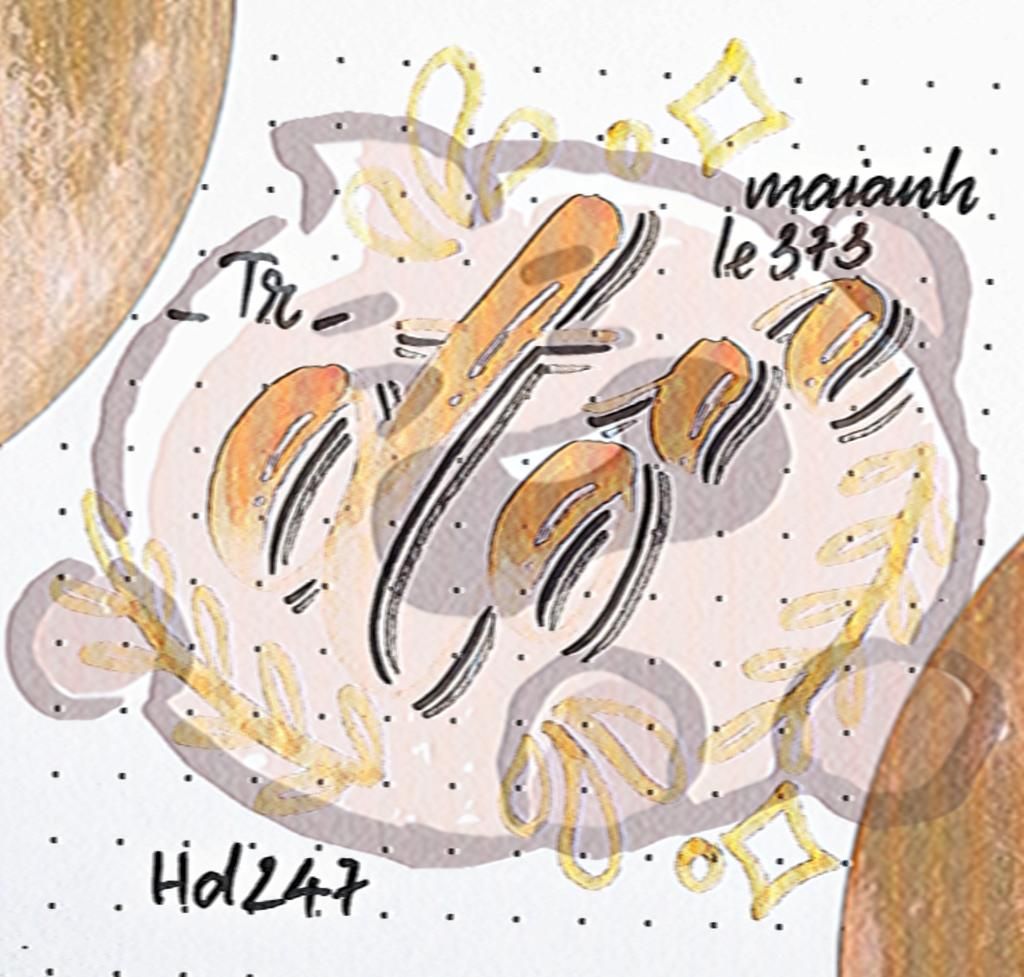 maianh
le373
_Tr_
Hd247